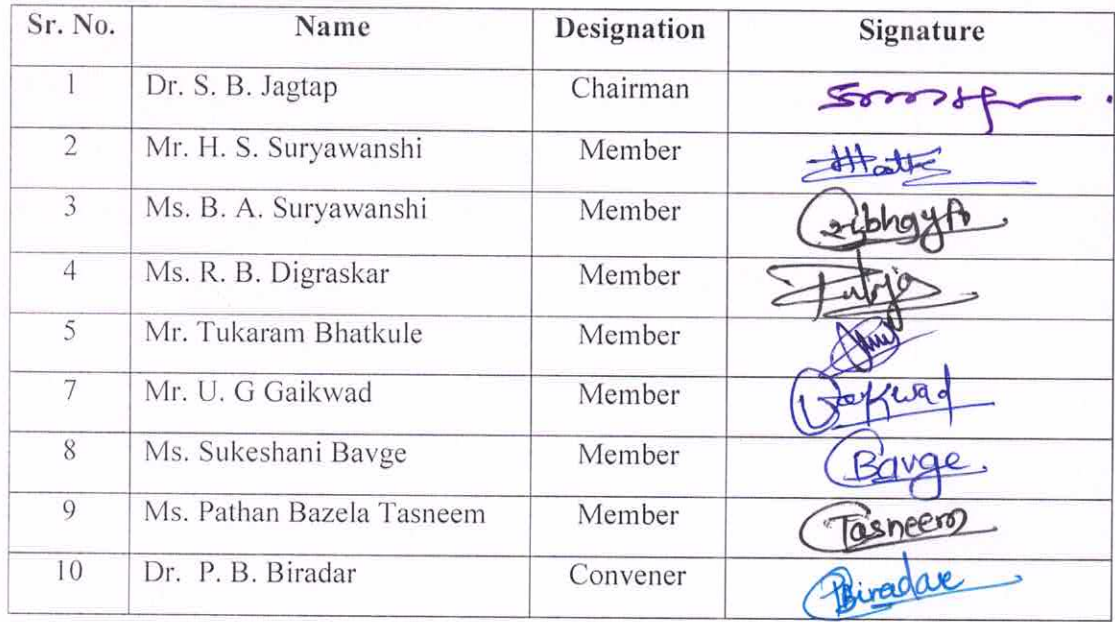 Sr. No. Name Designation Signature
1 Dr. S. B. Jagtap Chairman
2 Mr. H. S. Suryawanshi Member
3 Ms. B. A. Suryawanshi Member
4 Ms. R. B. Digraskar Member
5 Mr. Tukaram Bhatkule Member
7 Mr. U. G Gaikwad Member
8 Ms. Sukeshani Bavge Member Bavge
9 Ms. Pathan Bazela Tasneem Member Tasneem
10 Dr. P. B. Biradar Convener